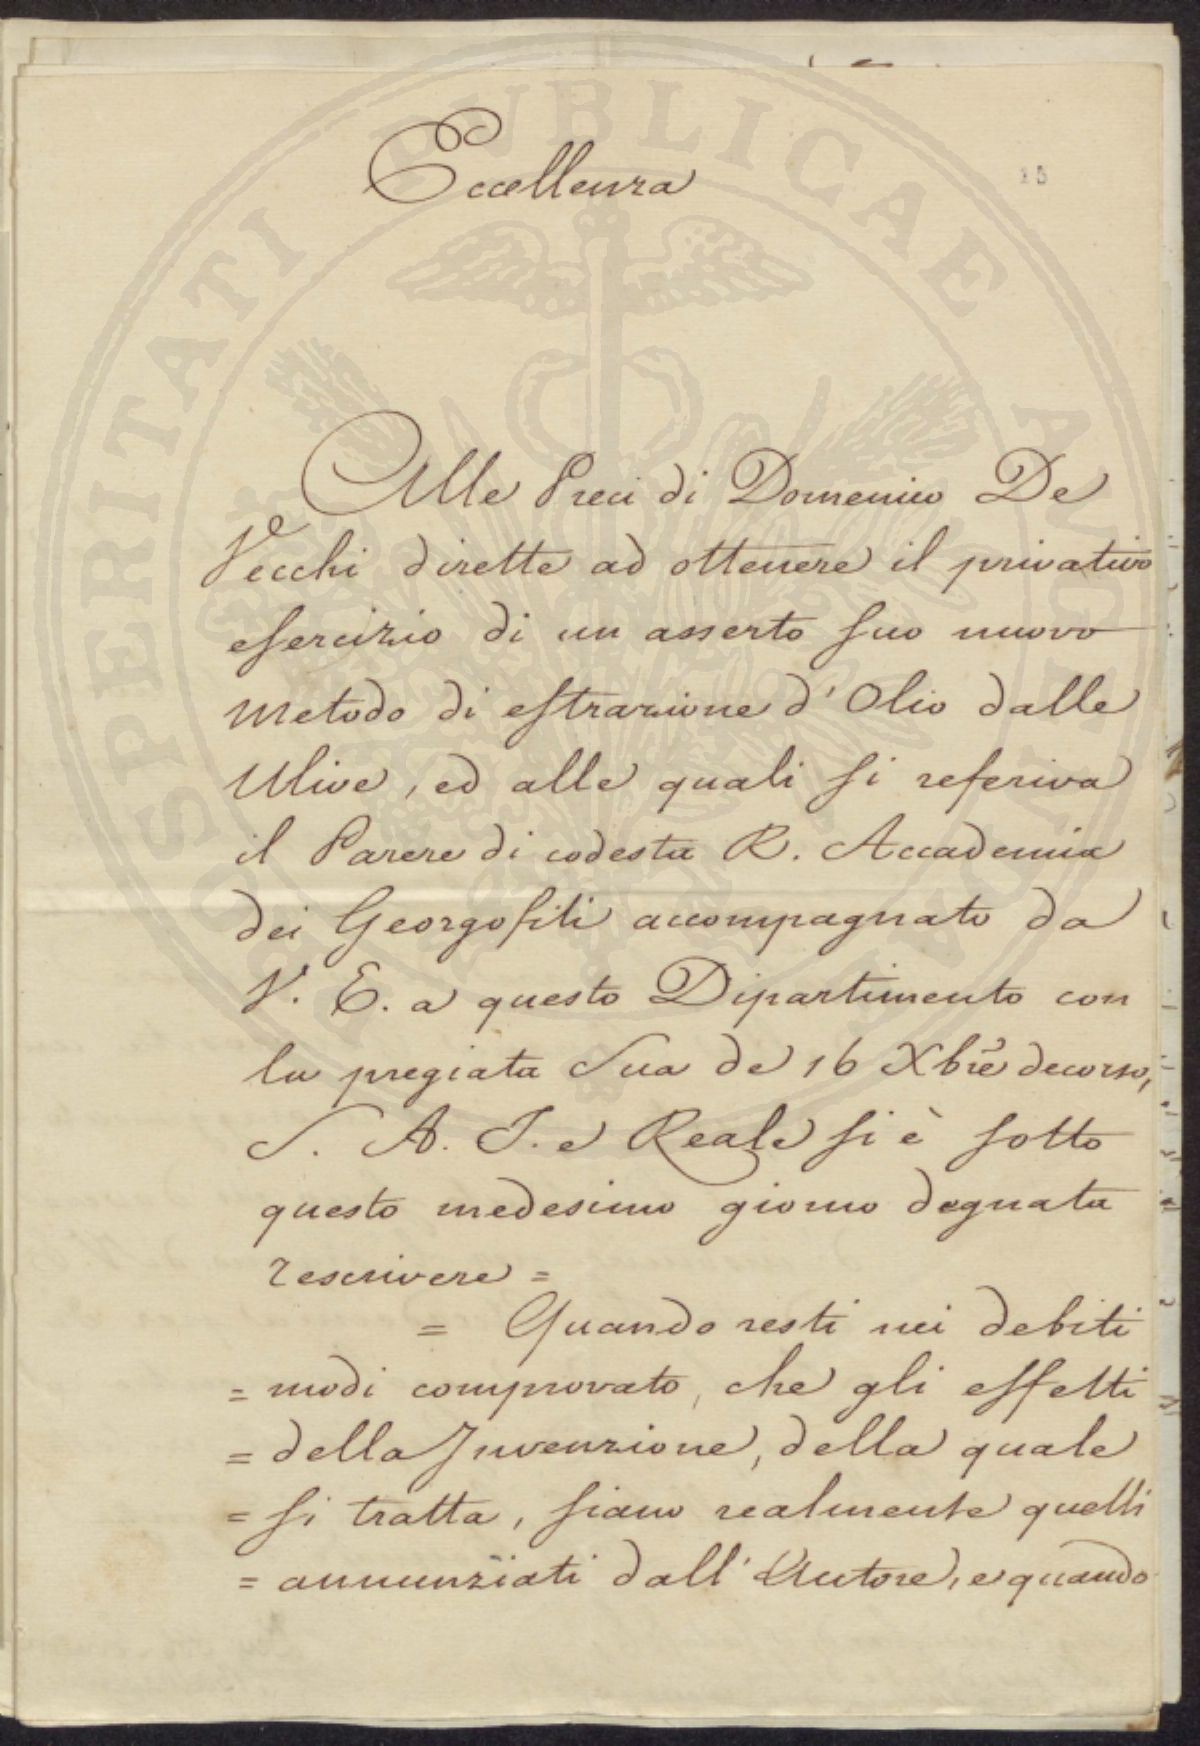 Eccellenza
15
Alle Preci di Domenico De
Vecchi dirette ad ottenere il privativo
esercizio di un asserto suo nuovo
metodo di estrazione d'Olio dalle
Ulive, ed alle quali si referiva
il Parere di codesta R. Accademia
dei Georgofili accompagnato da
V. E. a questo Dipartimento con
la pregiata Sua de 16 Xbre decorso,
S. A. I. e Reale si è sotto
questo medesimo giorno degnata
rescrivere =
= Quando resti nei debiti
= modi comprovato, che gli effetti
= della Invenzione, della quale
= si tratta, siano realmente quelli
= annunziati dall'Autore, e quando
PROSPERITATI PUBLICAE AUGENDAE